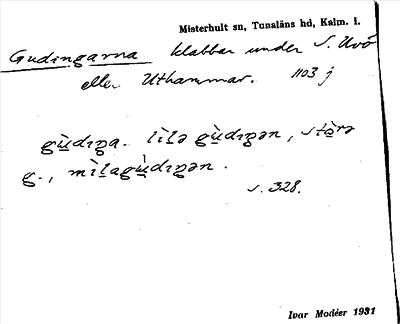 Misterhult sn, Tunaläns hd, Kalm. l.
Gudingarna klabbar under S. Uvö
eller Uthammar. 1103 j
gù̱dıŋa. lìlə gù̱dıŋən, stò̱rə
g., mìlagù̱dıŋən.
s. 328.
Ivar Modéer 1931